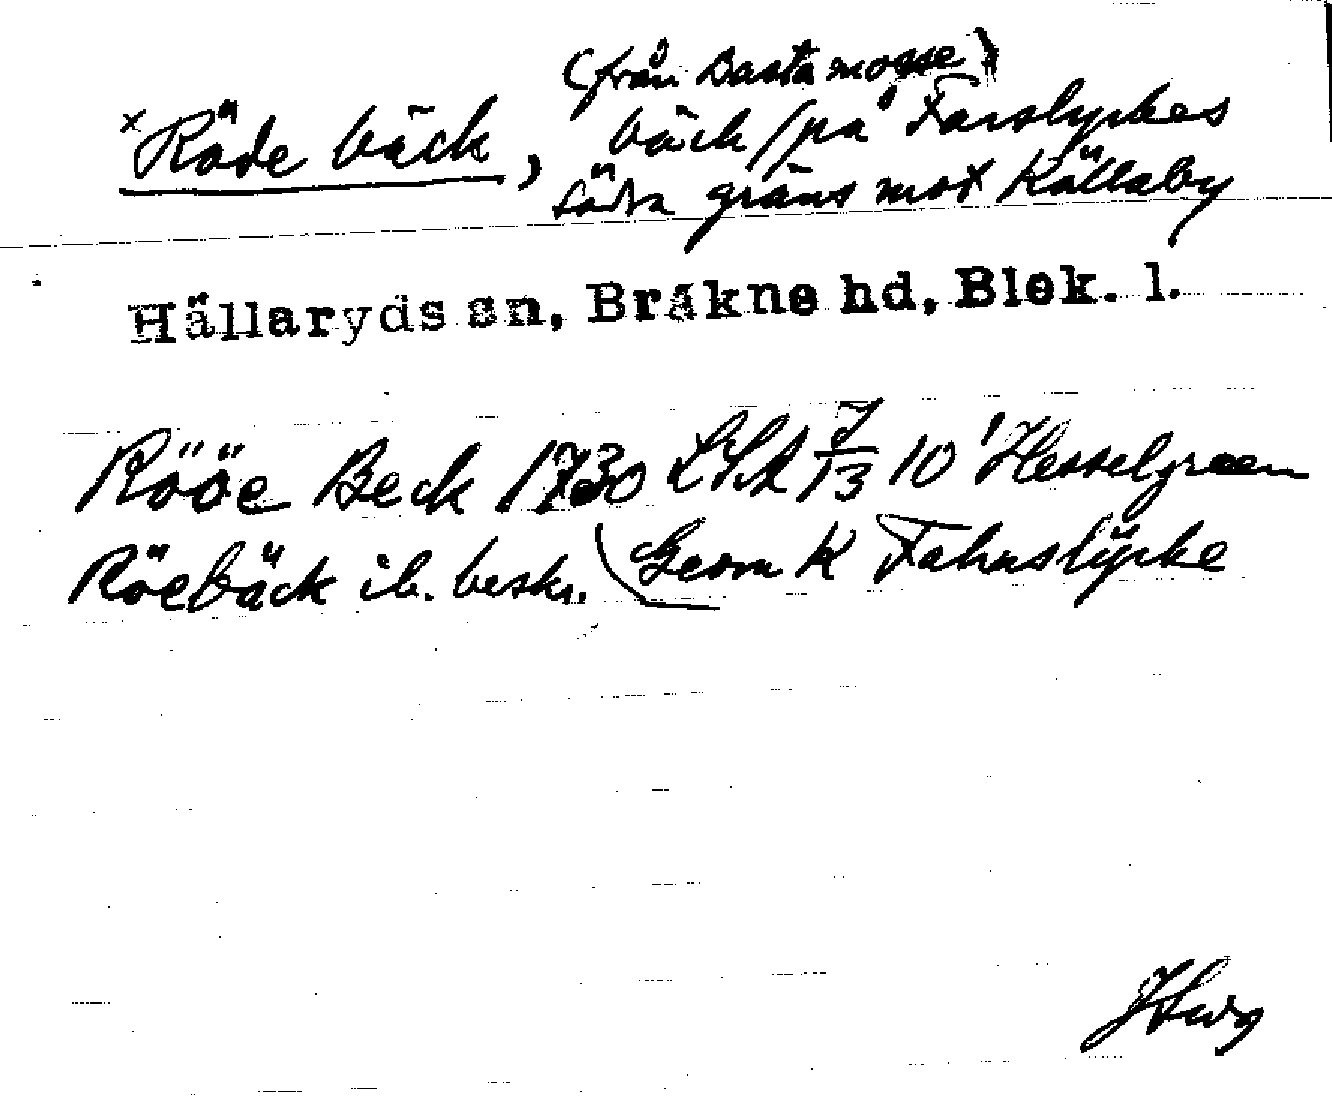 (från Bastamosse)
× Röde bäck, bäck på Farslyckes
södra gräns mot Källaby
Hällaryds sn, Bräkne hd, Blek. l.
Rööe Beck 1730 LSA 7/13 10' Hesselgreen
Röebäck ib. beskr. Geom K Fahrslÿcke